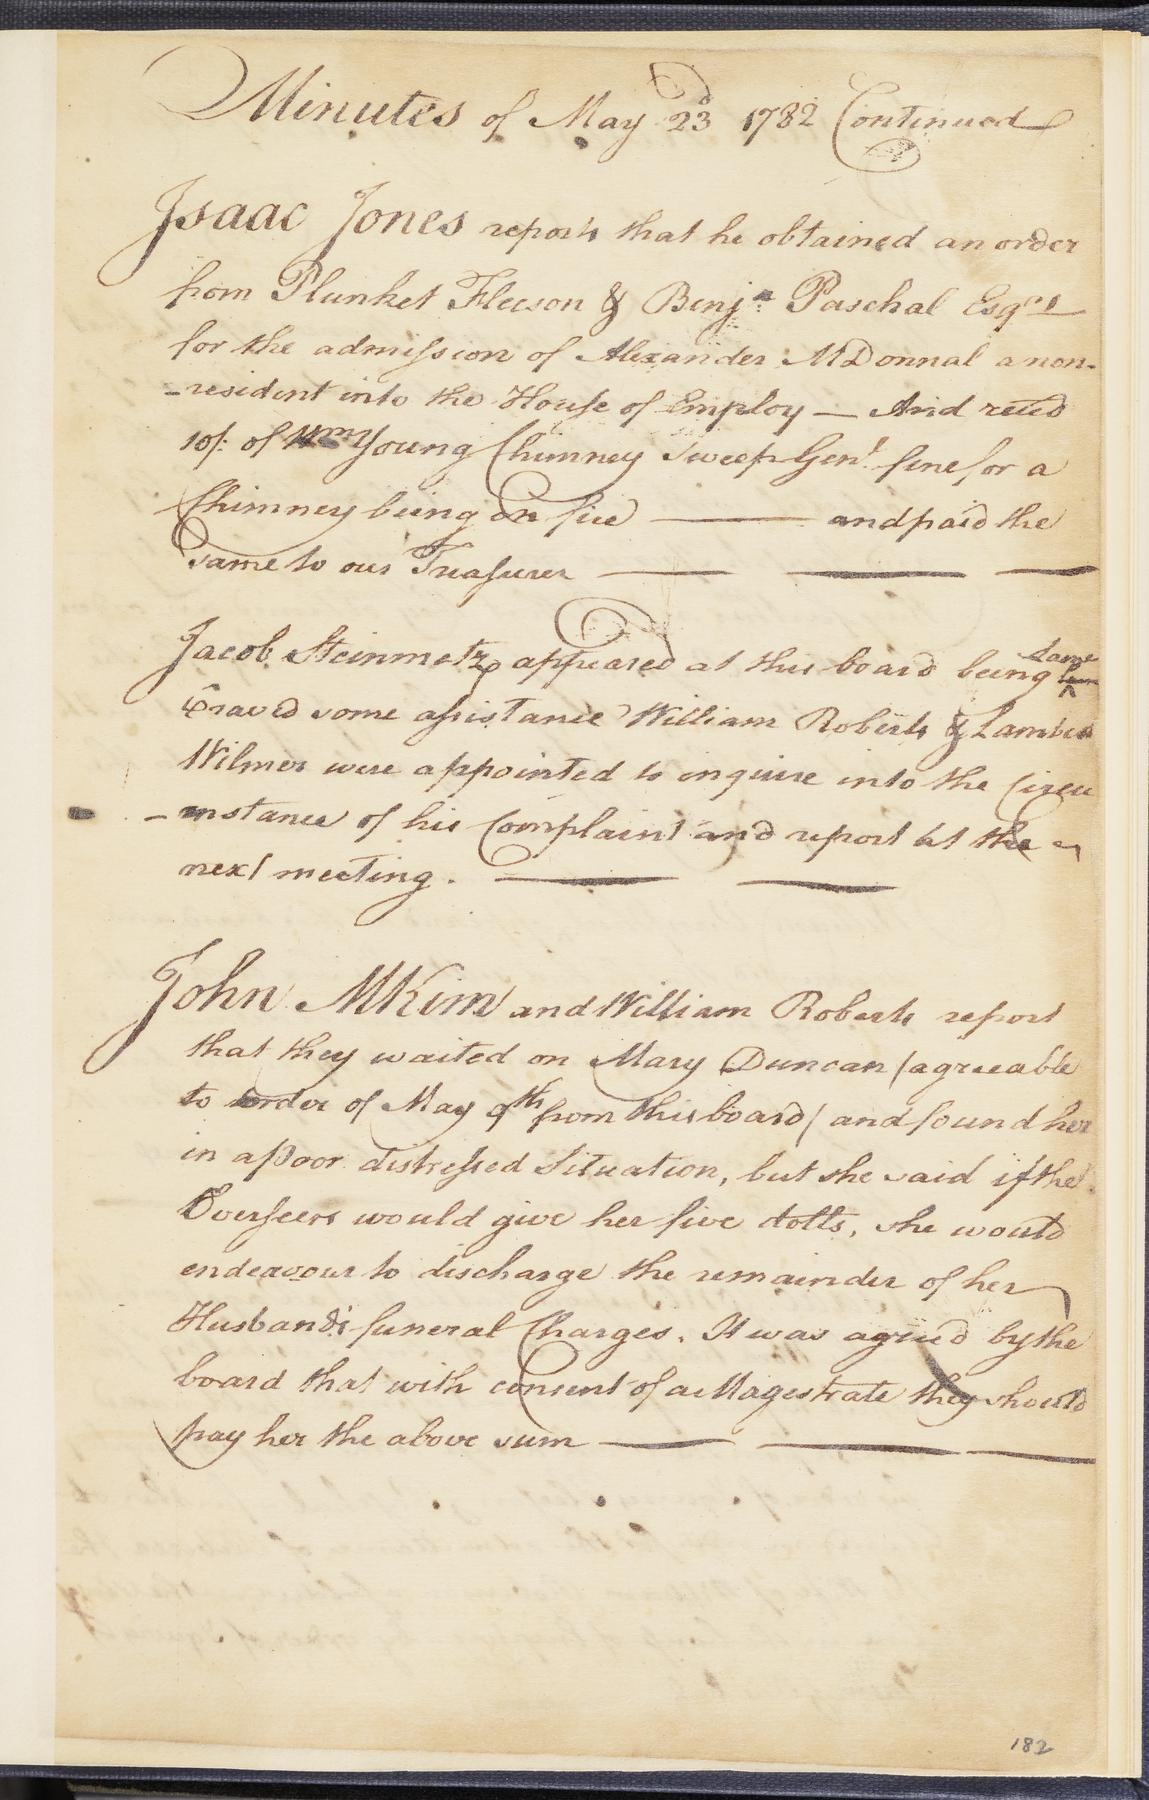 Minutes of May 23d 1782 Continued
Isaac Jones reports that he obtained an order
from Plunket Fleeson & Benjn Paschal Esqrs
for the admission of Alexander McDonnal a non-
-resident into the House of Employ — And reced
10/. of Wm Young Chimney Sweep Genl. fine for a
Chimney being on fire — and paid the
same to our Treasurer — — —
Jacob Steinmetz appeared at this board being lame
Craved some assistance William Roberts & Lambert
Wilmer were appointed to inquire into the Circu
-mstance of his Complaint and report at the
next meeting. — —
John McKim and William Roberts report
that they waited on Mary Duncan (agreeable
to order of May 9th from this board) and found her
in a Poor distressed Situation, but she said if the
Overseers would give her five dolls, she would
endeavour to discharge the remainder of her
Husbands funeral Charges. It was agreed by the
board that with consent of a Magestrate they should
pay her the above sum — — —
182